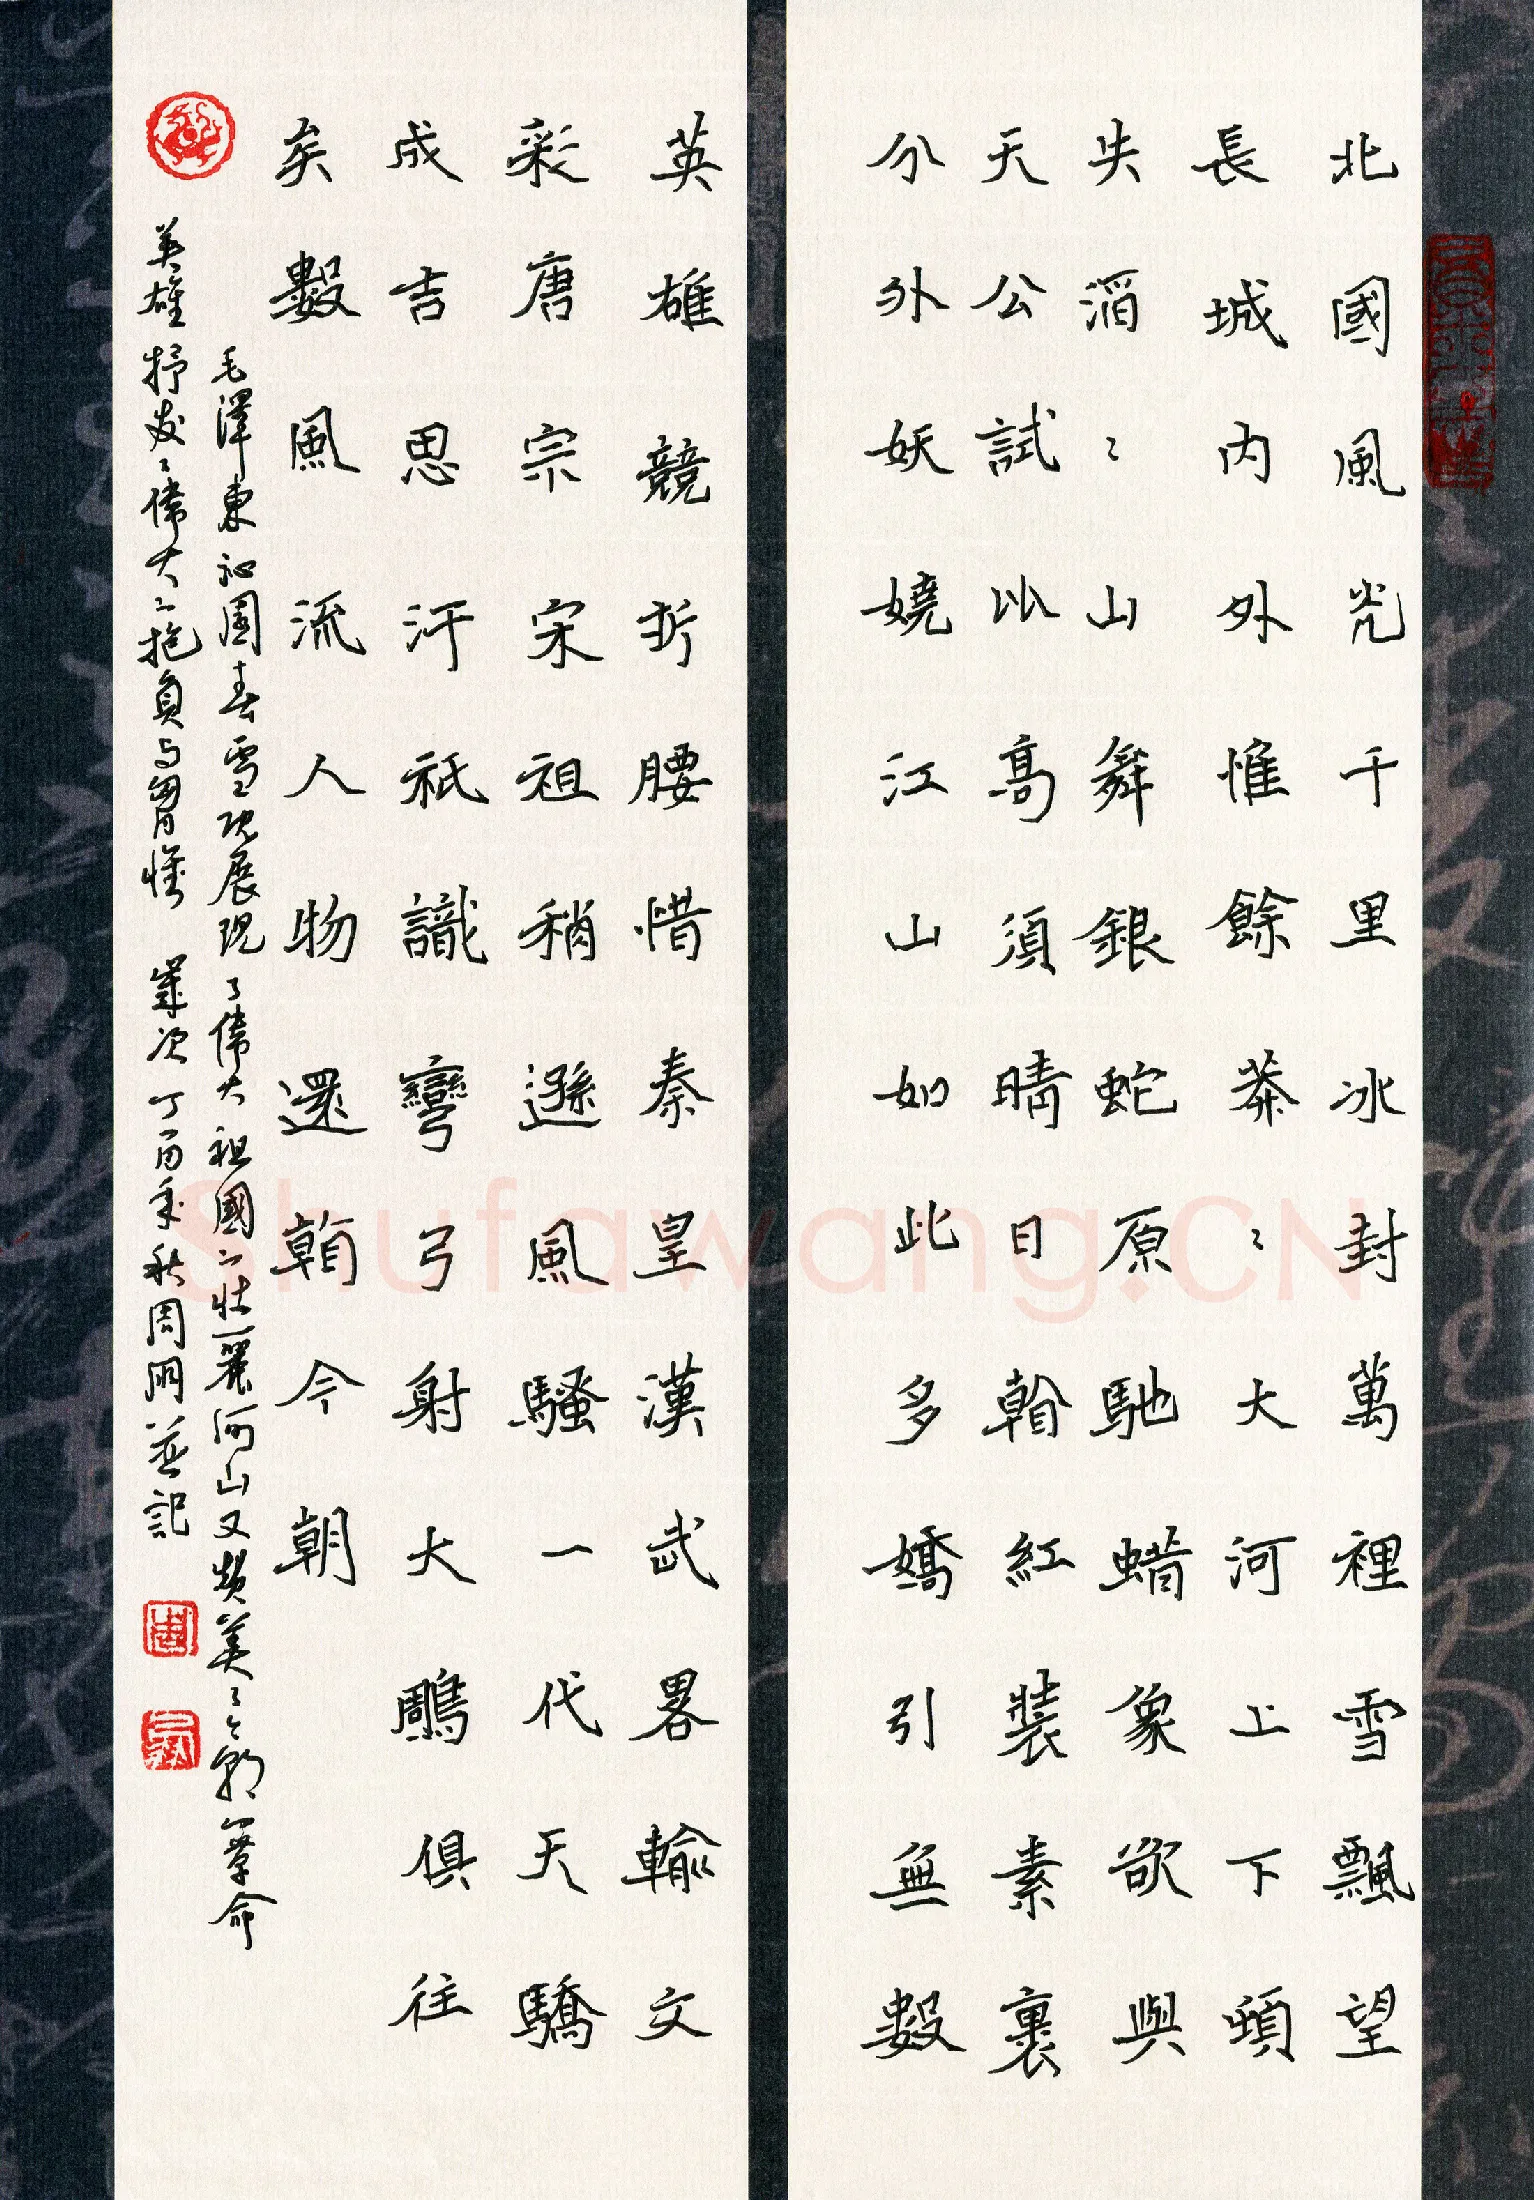 北國風光千里冰封萬裡雪飄望
長城內外惟餘莽〻大河上下頓
失滔〻山舞銀蛇原馳蜡象欲與
天公試比高須晴日看紅裝素裹
分外妖嬈江山如此多嬌引無數
英雄競折腰惜秦皇漢武畧輸文
彩唐宗宋祖稍遜風騷一代天驕
成吉思汗祇識彎弓射大鵰俱往
矣數風流人物還看今朝
毛澤東沁園春雪既展現了偉大祖國之壯麗河山又贊美了革命
英雄抒发了偉大之抱負与胃懷 歲次丁酉年秋周明並記
Shufawang.CN